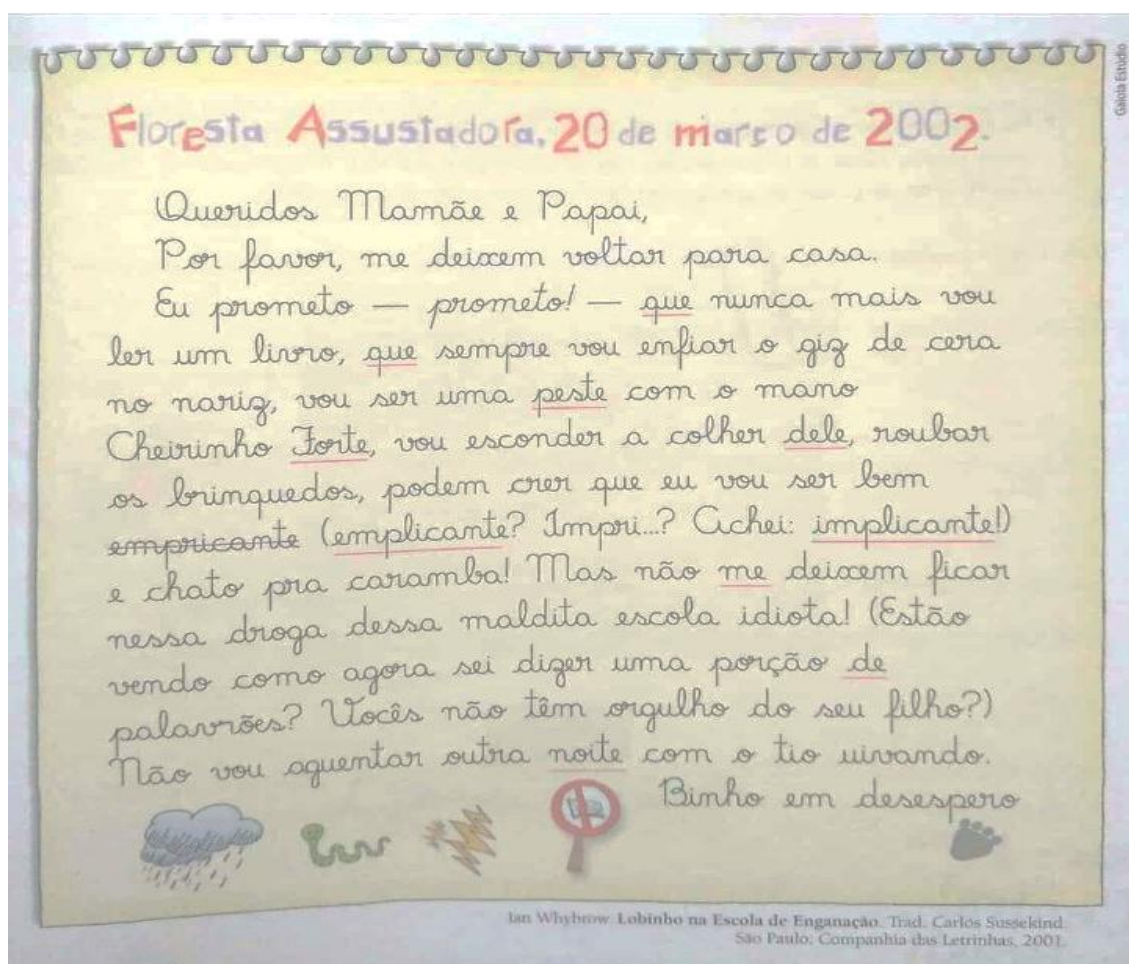 Gaiola Estúdio
Floresta Assustadora, 20 de março de 2002.
Queridos Mamãe e Papai,
Por favor, me deixem voltar para casa.
Eu prometo — prometo! — que nunca mais vou
ler um livro, que sempre vou enfiar o giz de cera
no nariz, vou ser uma peste com o mano
Cheirinho Forte, vou esconder a colher dele, roubar
os brinquedos, podem crer que eu vou ser bem
empricante (emplicante? Impri...? Achei: implicante!)
e chato pra caramba! Mas não me deixem ficar
nessa droga dessa maldita escola idiota! (Estão
vendo como agora sei dizer uma porção de
palavrões? Vocês não têm orgulho do seu filho?)
Não vou aguentar outra noite com o tio uivando.
Binho em desespero
Ian Whybrow. Lobinho na Escola de Enganação. Trad. Carlos Sussekind.
São Paulo: Companhia das Letrinhas, 2001.